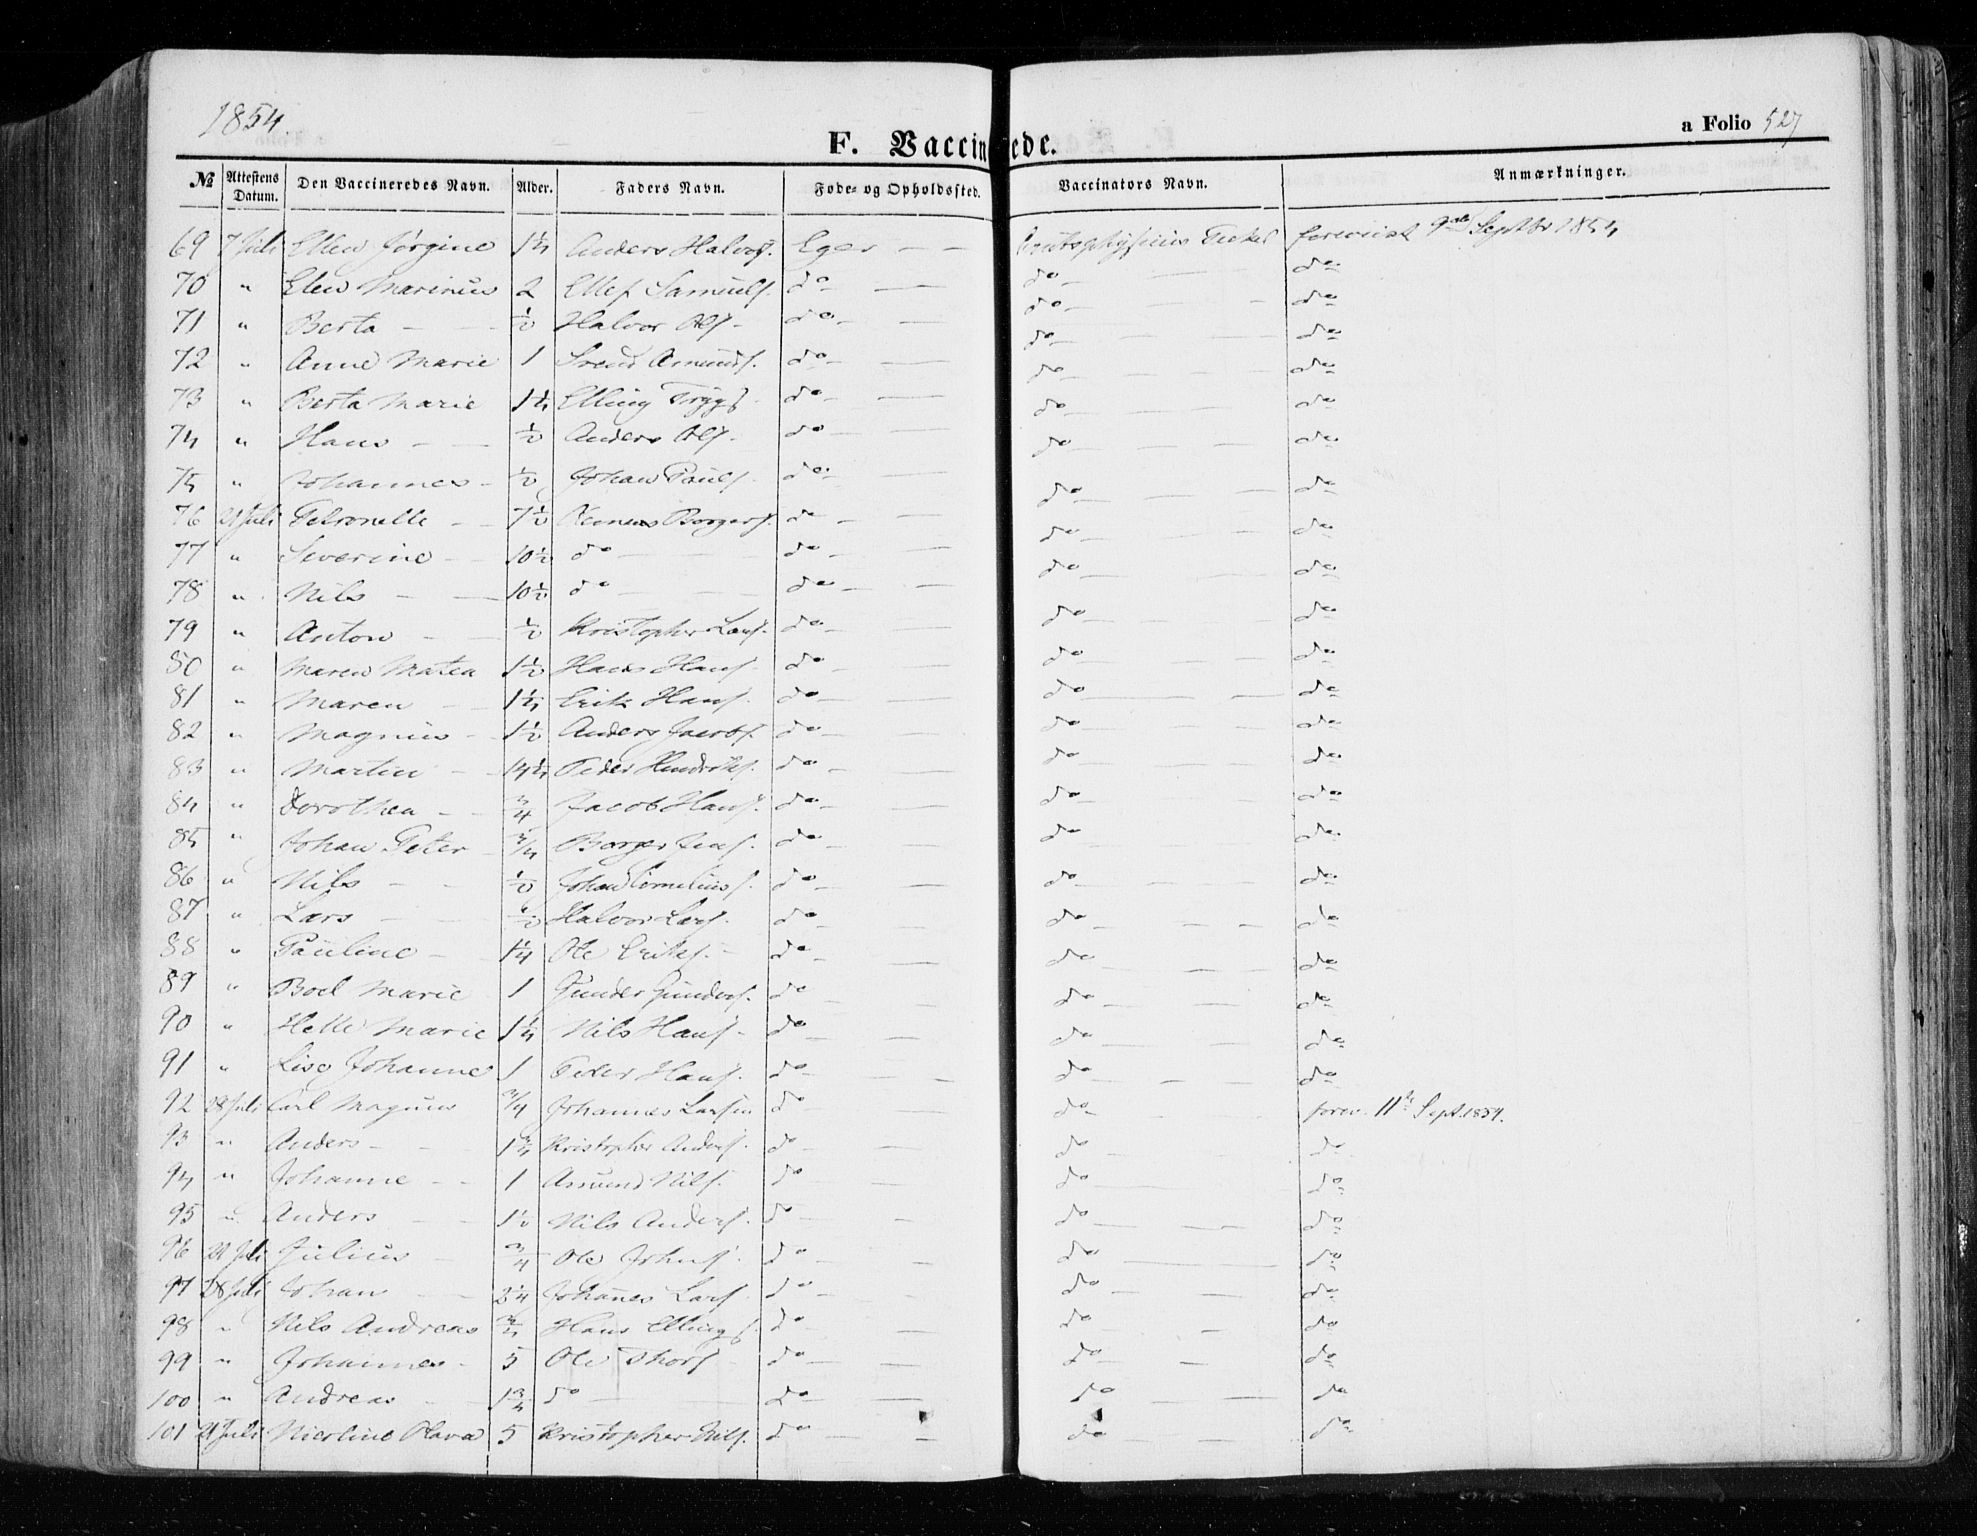 1854.
F. Vaccinerede.
a Folio 527
№ Attestens Datum. Den Vaccineredes Navn. Alder. Faders Navn. Føde- og Opholdssted. Vaccinators Navn. Anmærkninger.
69 7 Juli Ellen Jørgine 1¼ Anders Halvors. Eger forevist 9de Septbr 1854
70 " Elen Marinus 2 Ellef Samuels. do do do
71 " Berta ½ Halvor Ols. do do do
72 " Anne Marie 1 Svend Amunds. do do do
73 " Berta Marie 1¼ Elling Tryggs. do do do
74 " Hans ½ Anders Ols. do do do
75 " Johannes ½ Johan Pauls. do do do
76 21 Juli Petronelle 7½ Borgers. do do do
77 " Severine 10½ do do do do
78 " Nils 10½ do do do do
79 " Anton ½ Kristopher Lars. do do do
80 " Maren Matea 1½ Hans Hans. do do do
81 " Maren 1¼ Erik Hans. do do do
82 " Magnus 1½ Anders Jacobs. do do do
83 " Martin 14¼ Peder Hendriks. do do do
84 " Dorothea ¾ Jacob Hans. do do do
85 " Johan Peter ¾ Borger Jens. do do do
86 " Nils ½ Johan Cornelius s. do do do
87 " Lars ½ Halvor Lars. do do do
88 " Pauline 1¼ Ole Eriks. do do do
89 " Boel Marie 1 Gunder Gunders. do do do
90 " Helle Marie 1¼ Nils Hans. do do do
91 " Lise Johanne 1 Peder Hans. do do do
92 28 Juli Carl Magnus ¾ Johannes Larsen do do forev. 11te Sept. 1854.
93 " Anders 1¾ Kristopher Anders. do do do
94 " Johanne 1 Amund Nils. do do do
95 " Anders 1½ Nils Anders. do do do
96 21 Juli Julius ¾ Ole Johns. do do do
97 28 Juli Johan 2¼ Johannes Lars. do do do
98 " Nils Andreas ¾ Hans Ellings. do do do
99 " Johannes 5 Ole Thors. do do do
100 " Andreas 1¾ do do do do
101 21 Juli Nicoline Olava 5 Kristopher Nils. do do do